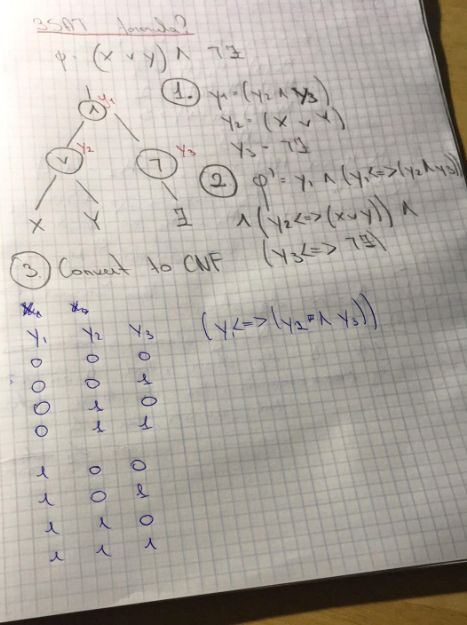 3SAT formula?
φ = (X ∨ Y) ∧ ¬Z
∧ y1
∨ y2
¬ y3
X Y Z
1. y1 = (y2 ∧ y3)
y2 = (X ∨ Y)
y3 = ¬Z
2 φ' = y1 ∧ (y1 <=> (y2 ∧ y3))
∧ (y2 <=> (x ∨ y)) ∧
(y3 <=> ¬Z)
3 Convert to CNF
y1 y2 y3
(y1 <=> (y2 ∧ y3))
0 0 0
0 0 1
0 1 0
0 1 1
1 0 0
1 0 1
1 1 0
1 1 1